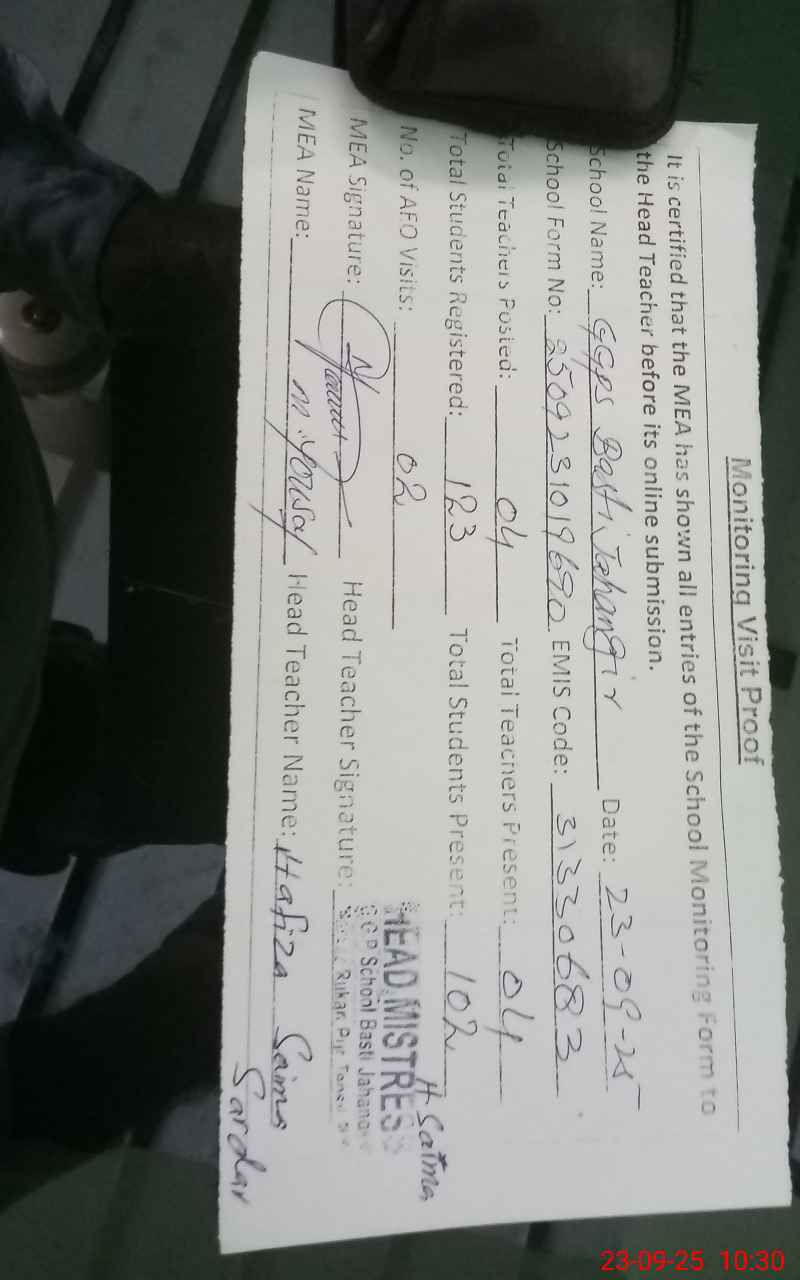 Monitoring Visit Proof
It is certified that the MEA has shown all entries of the School Monitoring Form to
the Head Teacher before its online submission.
School Name: GGPS Basti Jahangir Date: 23-09-25
School Form No: 2509231019690 EMIS Code: 31330683
Total Teachers Posted: 04 Total Teachers Present: 04
Total Students Registered: 123 Total Students Present: 102
No. of AEO Visits: 02
MEA Signature: Head Teacher Signature: H. Saima
HEAD MISTRESS
G G P School Basti Jahangir
MEA Name: M. Yousaf Head Teacher Name: Hafiza Saima
Sardar
23-09-25 10:30